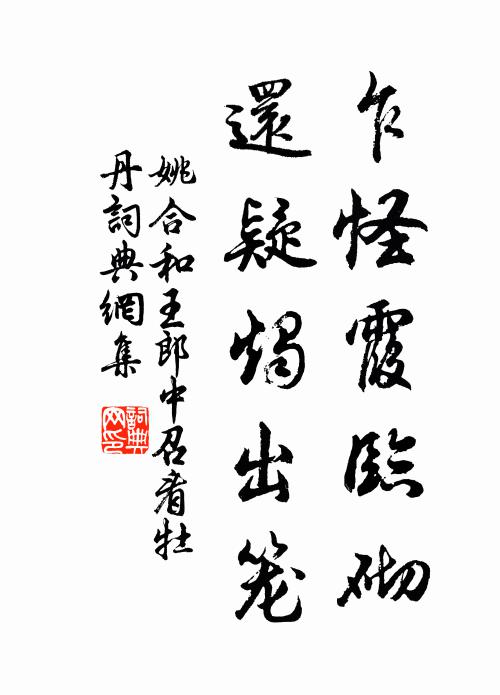 乍怪霞臨砌
還疑燭出笼
姚合和王郎中召看牡
丹詞典網集
詞典网印